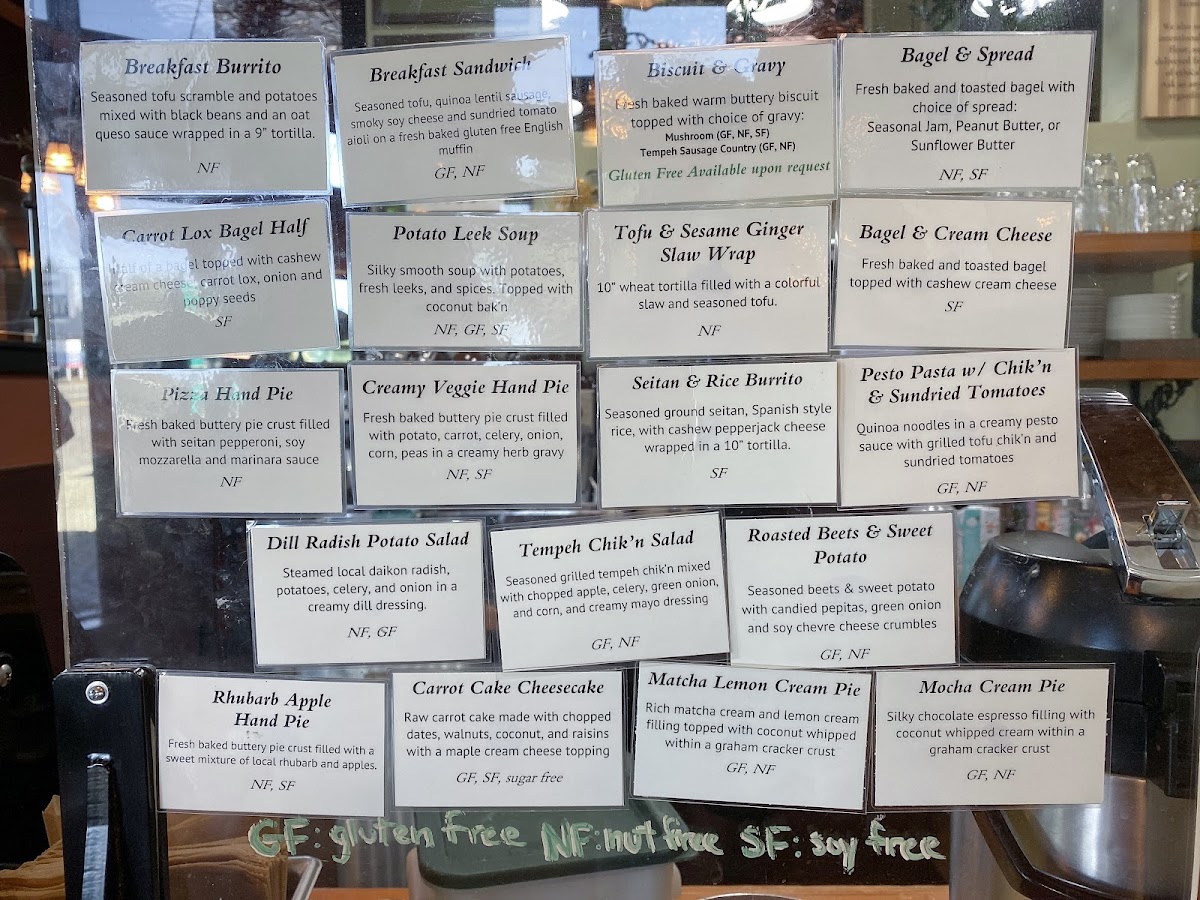 Breakfast Burrito
Seasoned tofu scramble and potatoes
mixed with black beans and an oat
queso sauce wrapped in a 9" tortilla.
NF
Breakfast Sandwich
Seasoned tofu, quinoa lentil sausage,
smoky soy cheese and sundried tomato
aioli on a fresh baked gluten free English
muffin
GF, NF
Biscuit & Gravy
Fresh baked warm buttery biscuit
topped with choice of gravy:
Mushroom (GF, NF, SF)
Tempeh Sausage Country (GF, NF)
Gluten Free Available upon request
Bagel & Spread
Fresh baked and toasted bagel with
choice of spread:
Seasonal Jam, Peanut Butter, or
Sunflower Butter
NF, SF
Carrot Lox Bagel Half
Half of a bagel topped with cashew
cream cheese, carrot lox, onion and
poppy seeds
SF
Potato Leek Soup
Silky smooth soup with potatoes,
fresh leeks, and spices. Topped with
coconut bak'n
NF, GF, SF
Tofu & Sesame Ginger
Slaw Wrap
10" wheat tortilla filled with a colorful
slaw and seasoned tofu.
NF
Bagel & Cream Cheese
Fresh baked and toasted bagel
topped with cashew cream cheese
SF
Pizza Hand Pie
Fresh baked buttery pie crust filled
with seitan pepperoni, soy
mozzarella and marinara sauce
NF
Creamy Veggie Hand Pie
Fresh baked buttery pie crust filled
with potato, carrot, celery, onion,
corn, peas in a creamy herb gravy
NF, SF
Seitan & Rice Burrito
Seasoned ground seitan, Spanish style
rice, with cashew pepperjack cheese
wrapped in a 10" tortilla.
SF
Pesto Pasta w/ Chik'n
& Sundried Tomatoes
Quinoa noodles in a creamy pesto
sauce with grilled tofu chik'n and
sundried tomatoes
GF, NF
Dill Radish Potato Salad
Steamed local daikon radish,
potatoes, celery, and onion in a
creamy dill dressing.
NF, GF
Tempeh Chik'n Salad
Seasoned grilled tempeh chik'n mixed
with chopped apple, celery, green onion,
and corn, and creamy mayo dressing
GF, NF
Roasted Beets & Sweet
Potato
Seasoned beets & sweet potato
with candied pepitas, green onion
and soy chevre cheese crumbles
GF, NF
Rhubarb Apple
Hand Pie
Fresh baked buttery pie crust filled with a
sweet mixture of local rhubarb and apples.
NF, SF
Carrot Cake Cheesecake
Raw carrot cake made with chopped
dates, walnuts, coconut, and raisins
with a maple cream cheese topping
GF, SF, sugar free
Matcha Lemon Cream Pie
Rich matcha cream and lemon cream
filling topped with coconut whipped
within a graham cracker crust
GF, NF
Mocha Cream Pie
Silky chocolate espresso filling with
coconut whipped cream within a
graham cracker crust
GF, NF
GF: gluten free NF: nut free SF: soy free